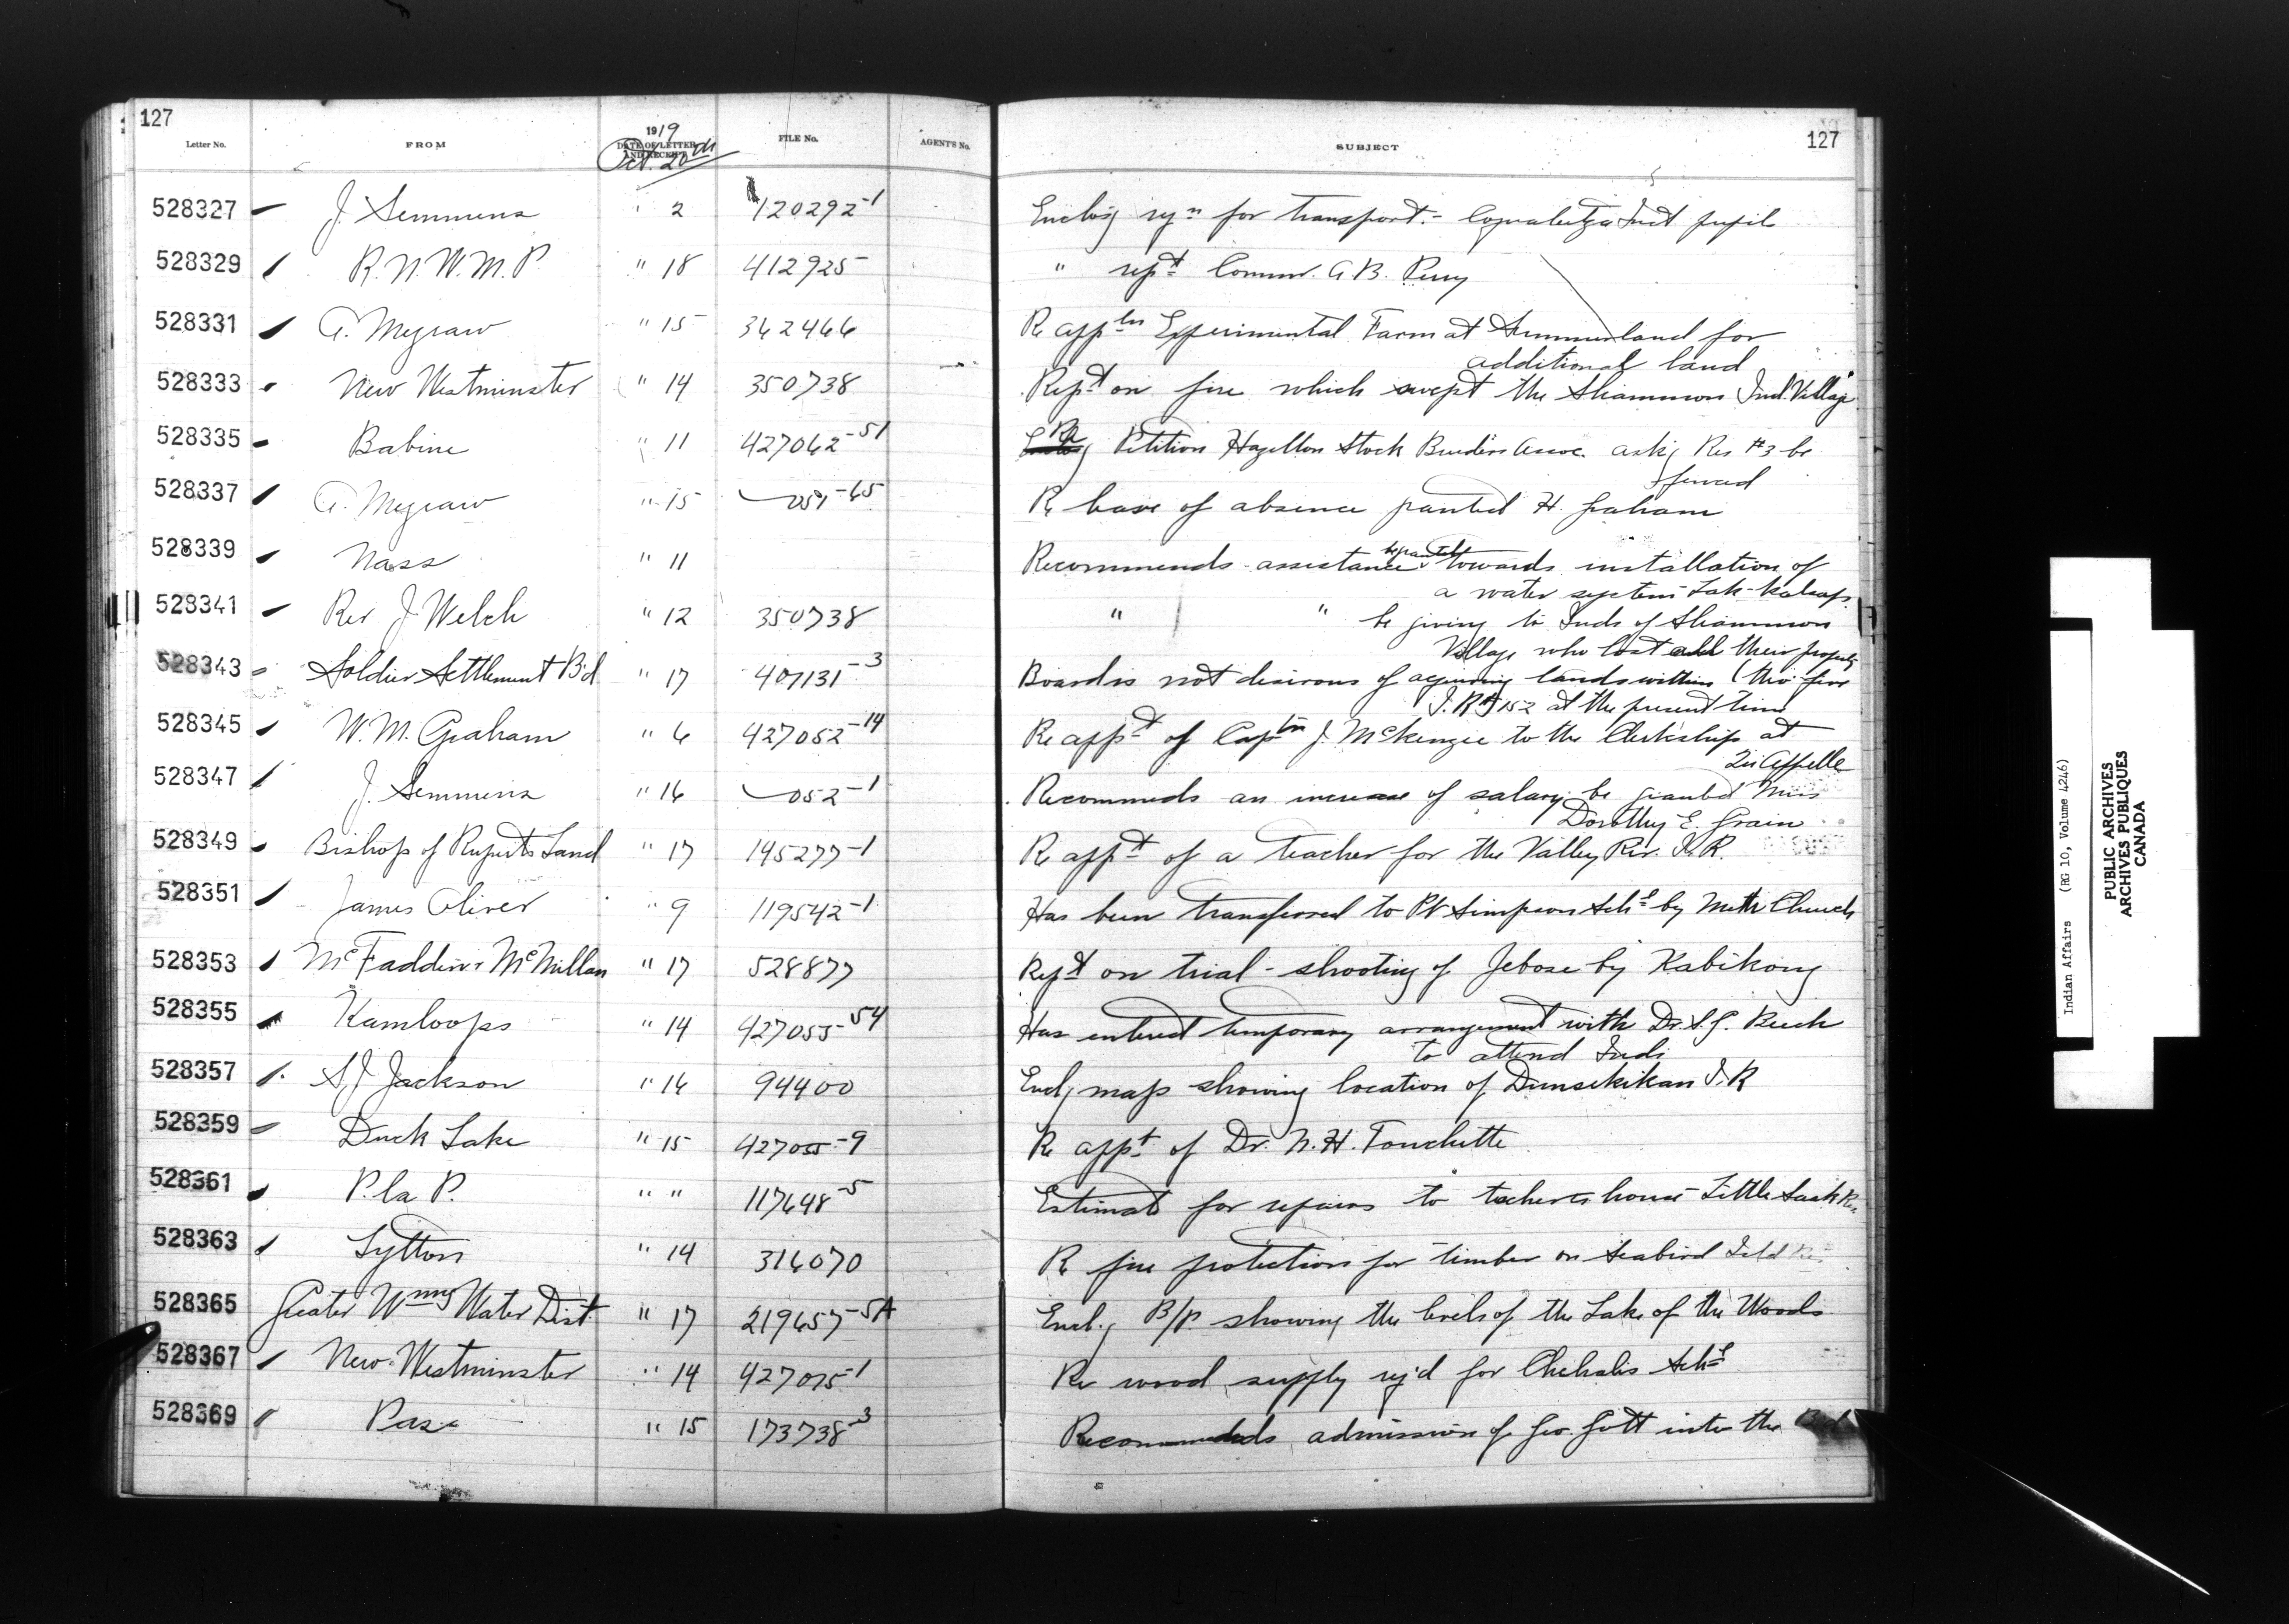 127
Letter No. FROM 1919 DATE OF LETTER AND RECEIPT FILE No. AGENT'S No. SUBJECT 127
Oct. 20th
528327 J. Semmens " 2 120292-1 Enclos'g rqn for transport. - Coqualeetza Inst pupils
528329 R.N.W.M.P. " 18 412925 " rept Commr. A.B. Perry
528331 A. Megraw " 15 342466 Re appln Experimental Farm at Summerland for
additional land
528333 New Westminster " 14 350738 Rept on fire which swept the Sliammon Ind. Village
528335 Babine " 11 427062-51 Re Petition Hazelton Stock Breeders Assoc. ask'g Res #3 be
fenced
528337 A. Megraw " 15 051-65 Re leave of absence granted H. Graham
528339 Nass " 11 Recommends assistance be granted towards installation of
a water system Lak-Kalzap
528341 Rev J Welch " 12 350738 " " be giving to Inds of Sliammon
Village who lost all their property
528343 Soldier Settlement B'd " 17 407131-3 Board is not desirous of acquiring lands within (thro' fire
I.R. #152 at the present time
528345 W.M. Graham " 6 427052-14 Re appt of Captn J. McKenzie to the Clerkship at
Qu'Appelle
528347 J. Semmens " 16 052-1 Recommends an increase of salary be granted Miss
Dorothy E. Grain
528349 Bishop of Ruperts Land " 17 145277-1 Re appt of a teacher for the Valley Riv. I.R.
528351 James Oliver " 9 119542-1 Has been transferred to Pt Simpson Schl by Meth Church
528353 McFadden & McMillan " 17 528877 Rept on trial - shooting of Jebose by Kabikong
528355 Kamloops " 14 427055-54 Has entered temporary arrangement with Dr. S.G.
to attend Inds
528357 S J Jackson " 16 94400 Encl'g map showing location of I.R
528359 Duck Lake " 15 427055-9 Re appt of Dr. N.H. Touchette
528361 P. la P. " " 117648-5 Estimate for repairs to teachers house - Little Sask Res.
528363 Lytton " 14 316070 Re fire protection for timber on Seabird Isld Res
528365 Greater Wnnpg Water Dist. " 17 219657-5A Encl.g B/P. showing the levels of the Lake of the Woods
528367 New Westminster " 14 427075-1 Re wood supply rq'd for Chehalis Schl
528369 Pas " 15 173738-3 Recommends admission of Geo. Gott into the Bd
Indian Affairs (RG 10, Volume 4246)
PUBLIC ARCHIVES
ARCHIVES PUBLIQUES
CANADA